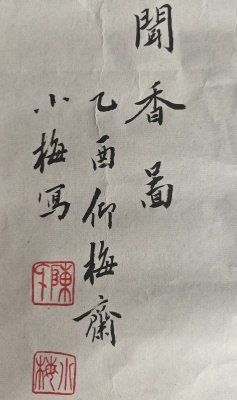 聞香圖
乙酉仰梅齋
小梅寫
小梅